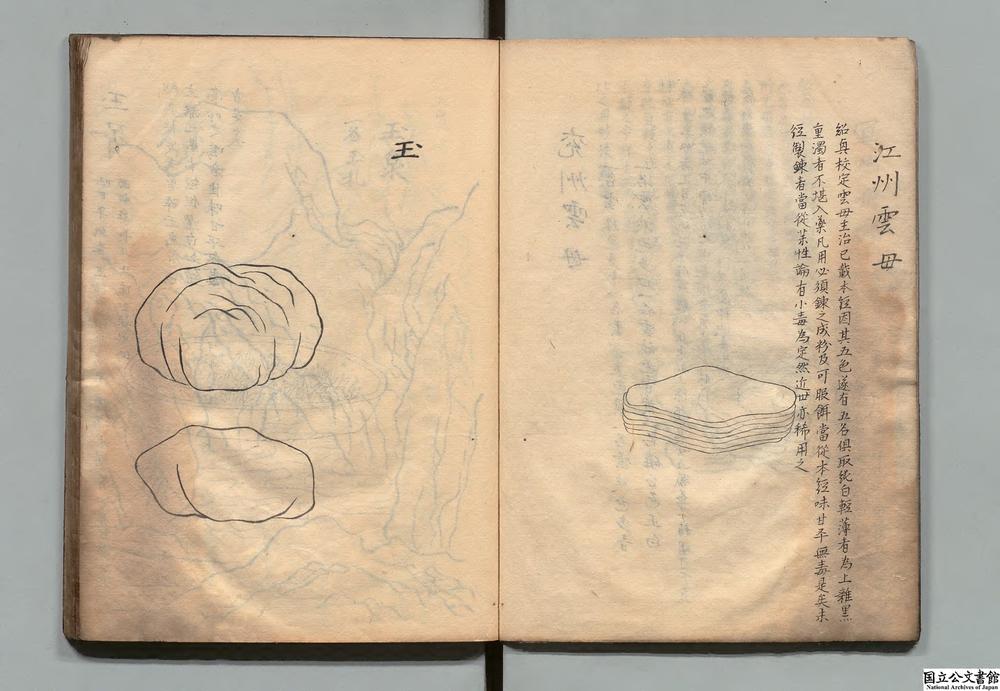 江州雲母
紹興校定雲母主治已載本經因其五色遂有五名俱取純白輕薄者為上雜黑
重濁者不堪入藥凡用必須鍊之成粉及可服餌當從本經味甘平無毒是矣未
經製鍊者當從藥性論有小毒為定然近世亦稀用之
玉
国立公文書館
National Archives of Japan